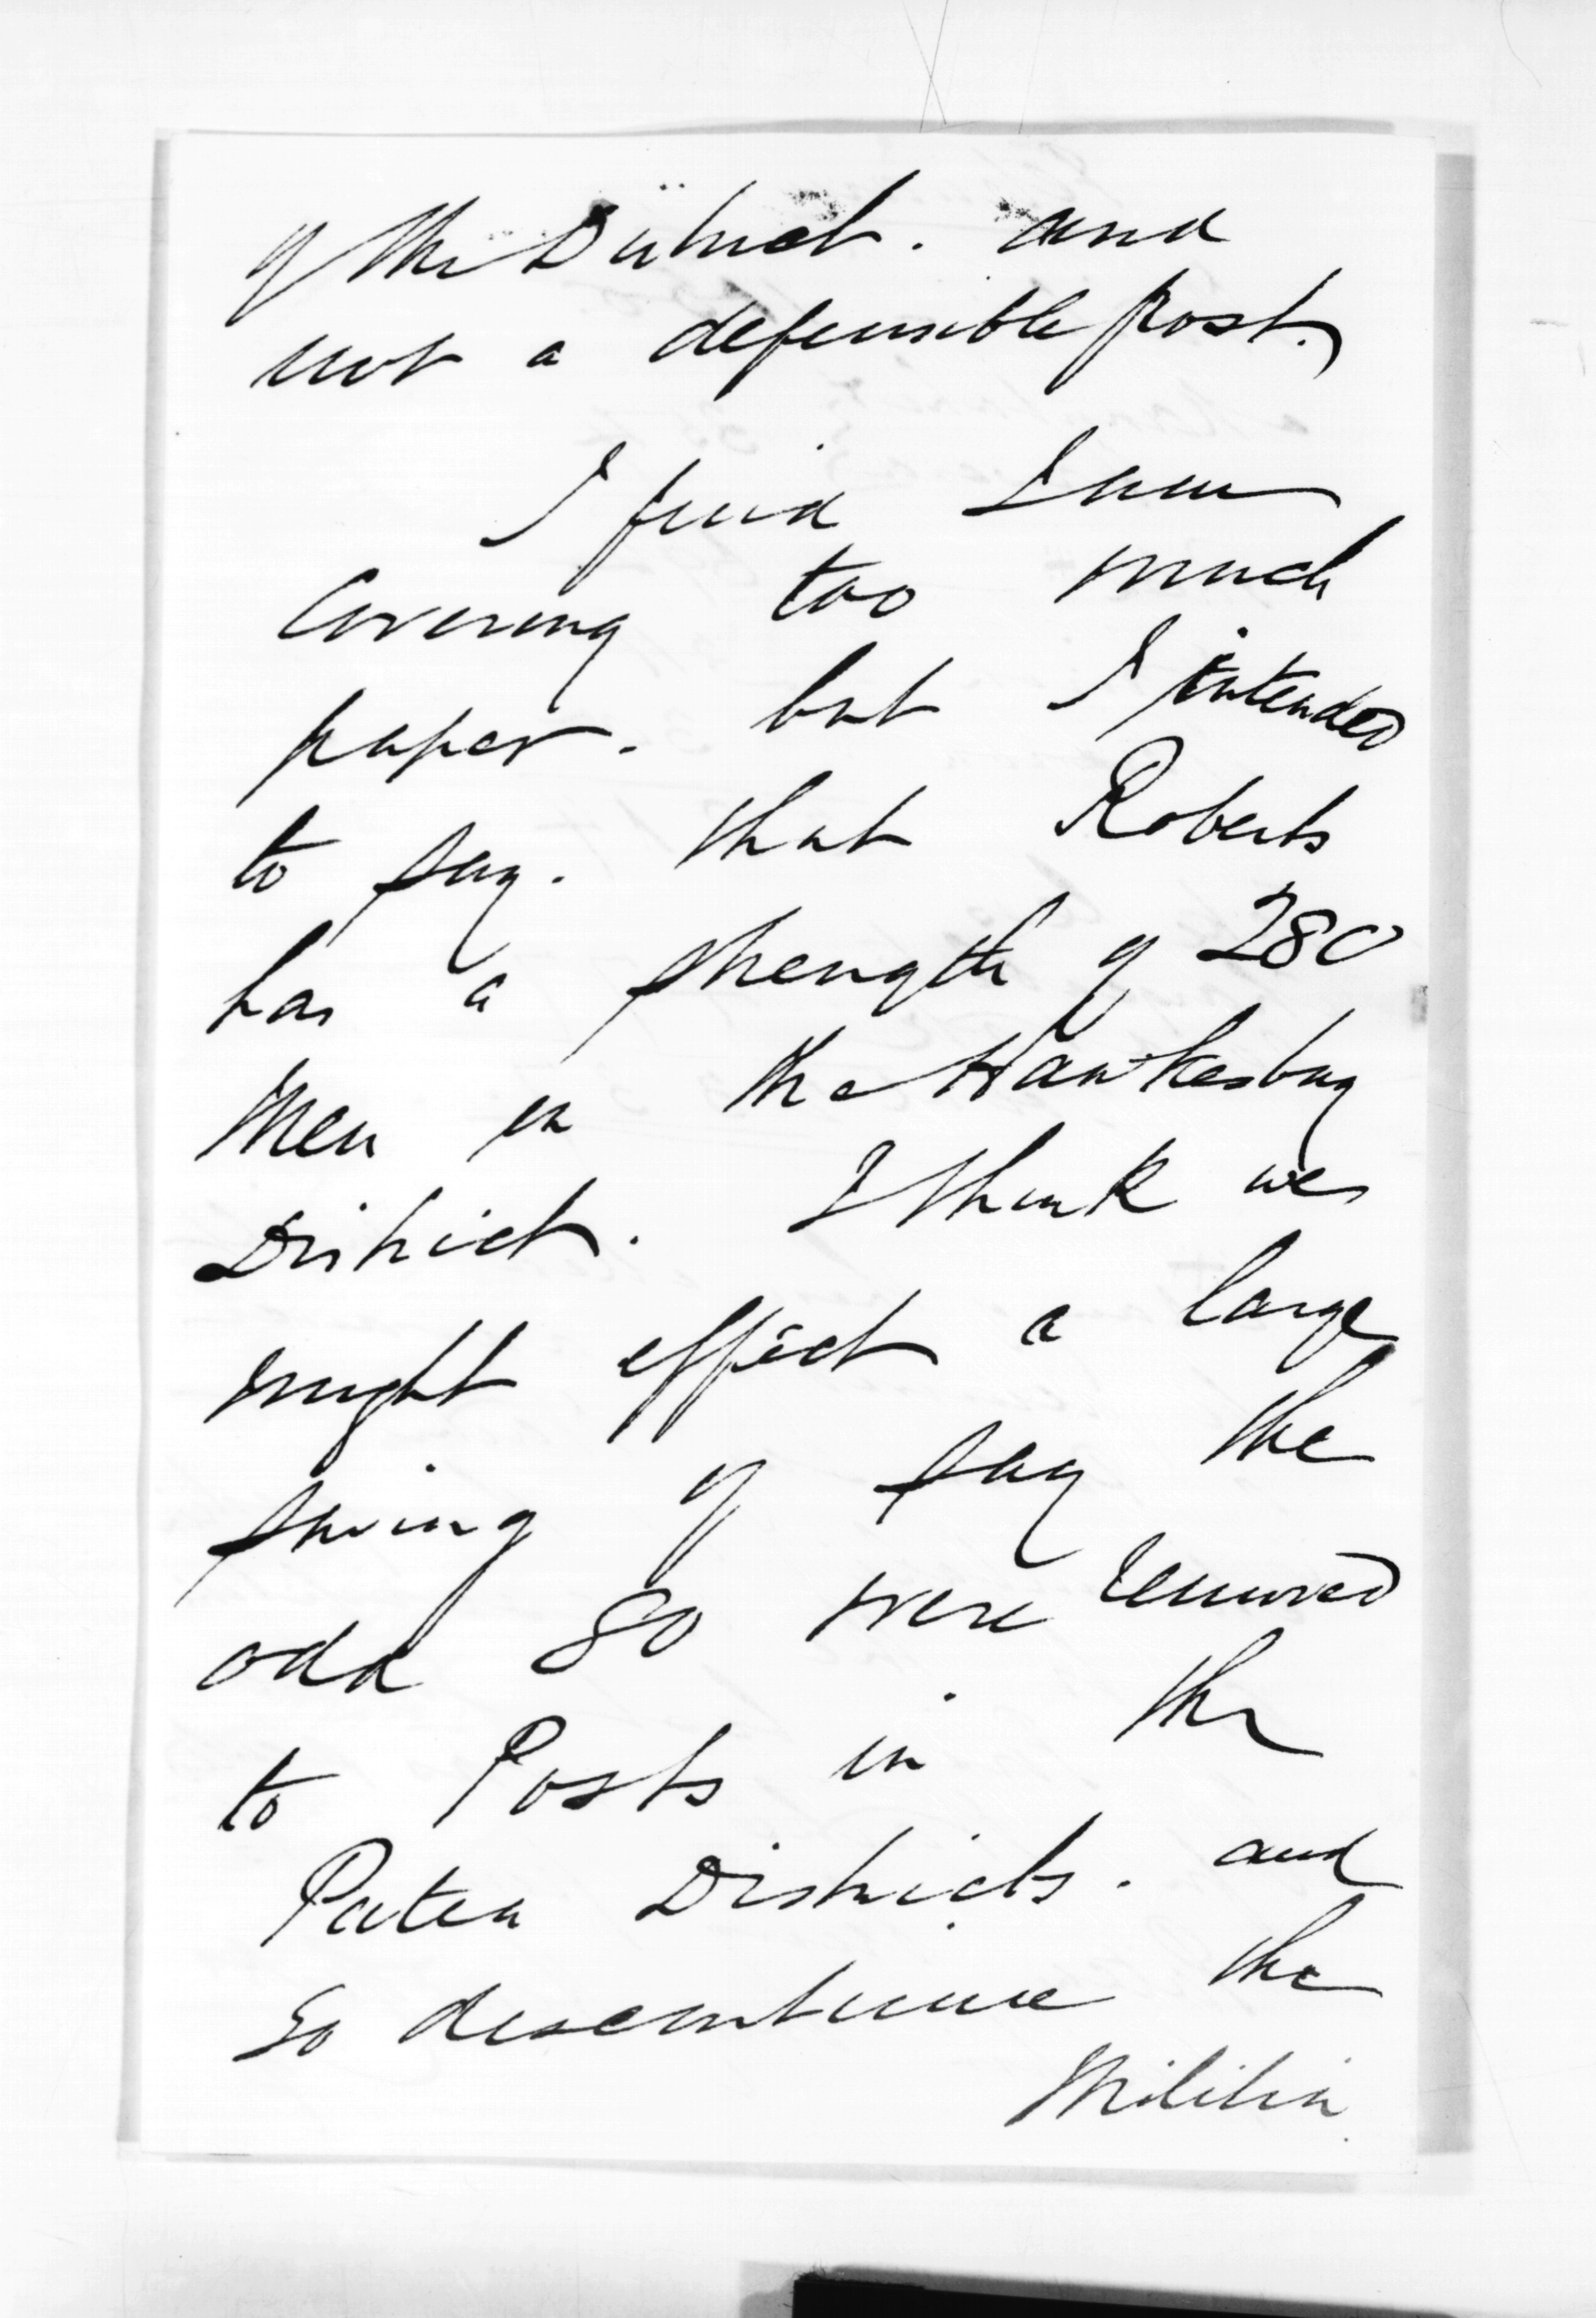 of the District. and
not a defensible post.)
I find I am
covering too much
paper. but I intended
to say. that Roberts
has a strength of 280
Men in the Hawkesbury
District. I think we
might effect a large
saving if say the
odd 80 were removed
to Posts in the
Patea Districts. and
so discontinue the
Militia